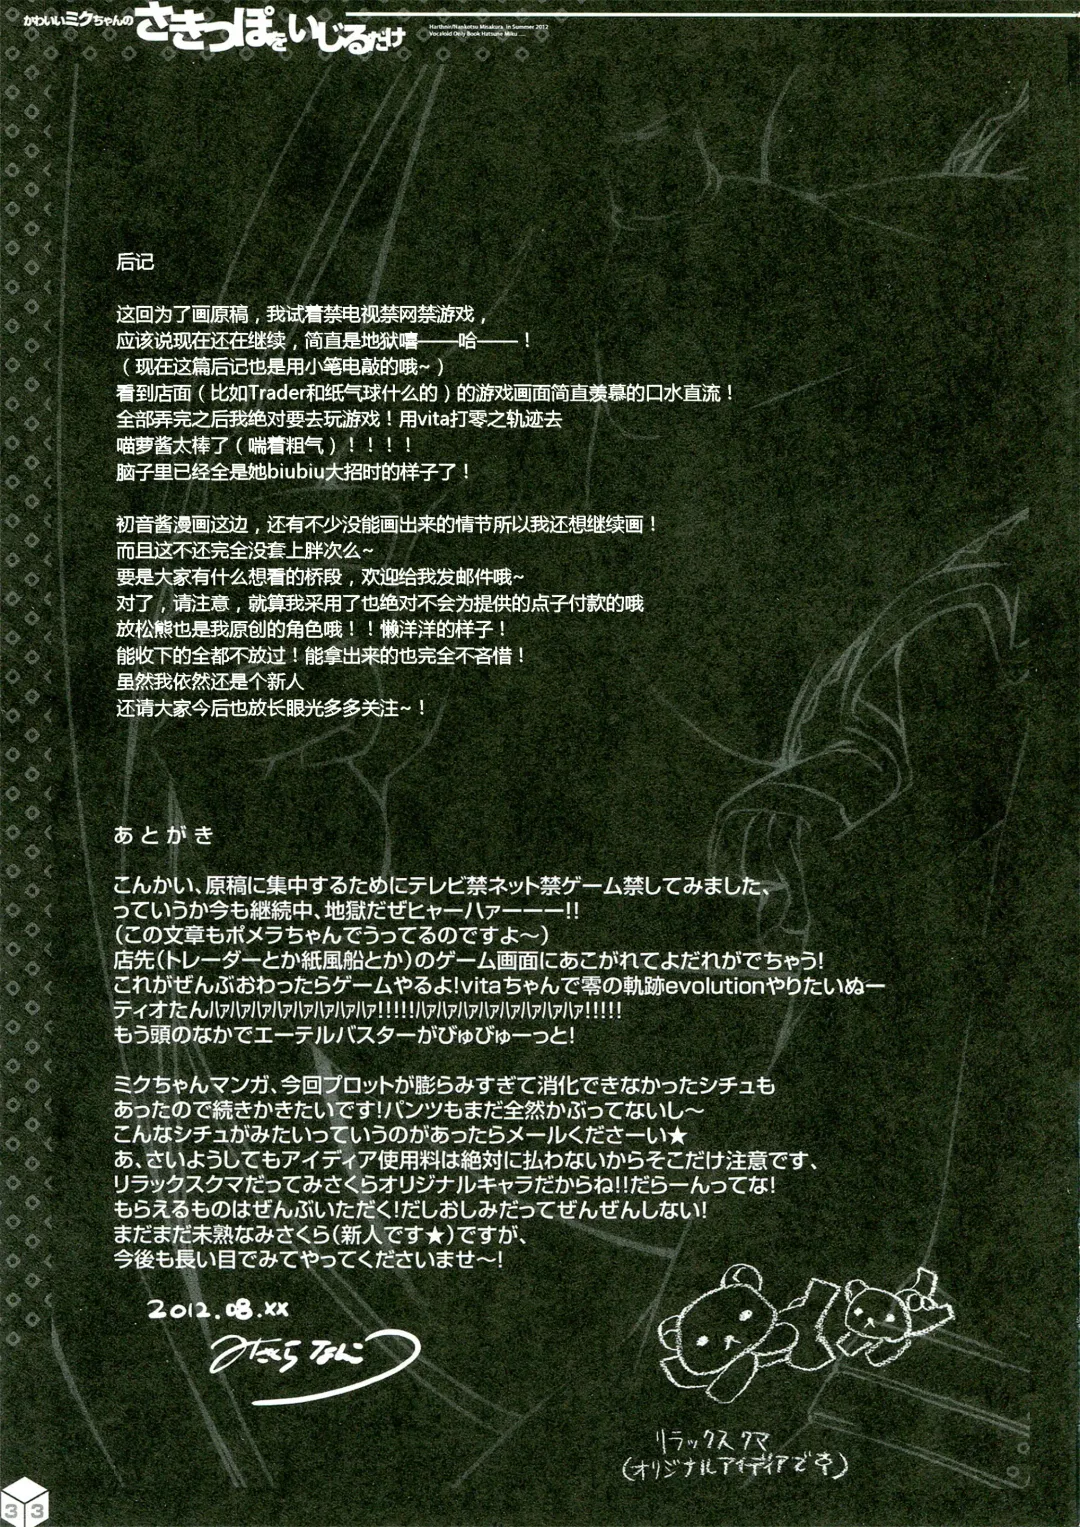 かわいいミクちゃんの
さきっぽをいじるだけ
Harthnir/Nankotsu Misakura. in Summer 2012
Vocaloid Only Book Hatsune Miku .....
后记
这回为了画原稿，我试着禁电视禁网禁游戏，
应该说现在还在继续，简直是地狱嘻——哈——！
（现在这篇后记也是用小笔电敲的哦~）
看到店面（比如Trader和纸气球什么的）的游戏画面简直羡慕的口水直流！
全部弄完之后我绝对要去玩游戏！用vita打零之轨迹去
喵萝酱太棒了（喘着粗气）！！！！
脑子里已经全是她biubiu大招时的样子了！
初音酱漫画这边，还有不少没能画出来的情节所以我还想继续画！
而且这不还完全没套上胖次么~
要是大家有什么想看的桥段，欢迎给我发邮件哦~
对了，请注意，就算我采用了也绝对不会为提供的点子付款的哦
放松熊也是我原创的角色哦！！懒洋洋的样子！
能收下的全都不放过！能拿出来的也完全不吝惜！
虽然我依然还是个新人
还请大家今后也放长眼光多多关注~！
あとがき
こんかい、原稿に集中するためにテレビ禁ネット禁ゲーム禁してみました、
っていうか今も継続中、地獄だぜヒャーハァーーー!!
（この文章もポメラちゃんでうってるのですよ〜）
店先（トレーダーとか紙風船とか）のゲーム画面にあこがれてよだれがでちゃう!
これがぜんぶおわったらゲームやるよ!vitaちゃんで零の軌跡evolutionやりたいぬー
ティオたんﾊｧﾊｧﾊｧﾊｧﾊｧﾊｧﾊｧﾊｧ!!!!!ﾊｧﾊｧﾊｧﾊｧﾊｧﾊｧﾊｧﾊｧ!!!!!
もう頭のなかでエーテルバスターがびゅびゅーっと!
ミクちゃんマンガ、今回プロットが膨らみすぎて消化できなかったシチュも
あったので続きかきたいです!パンツもまだ全然かぶってないし〜
こんなシチュがみたいっていうのがあったらメールくださーい★
あ、さいようしてもアイディア使用料は絶対に払わないからそこだけ注意です、
リラックスクマだってみさくらオリジナルキャラだからね!!だらーんってな!
もらえるものはぜんぶいただく!だしおしみだってぜんぜんしない!
まだまだ未熟なみさくら（新人です★）ですが、
今後も長い目でみてやってくださいませ〜!
2012.08.XX
みさくらなんこつ
リラックスクマ
（オリジナルアイディアです）
33